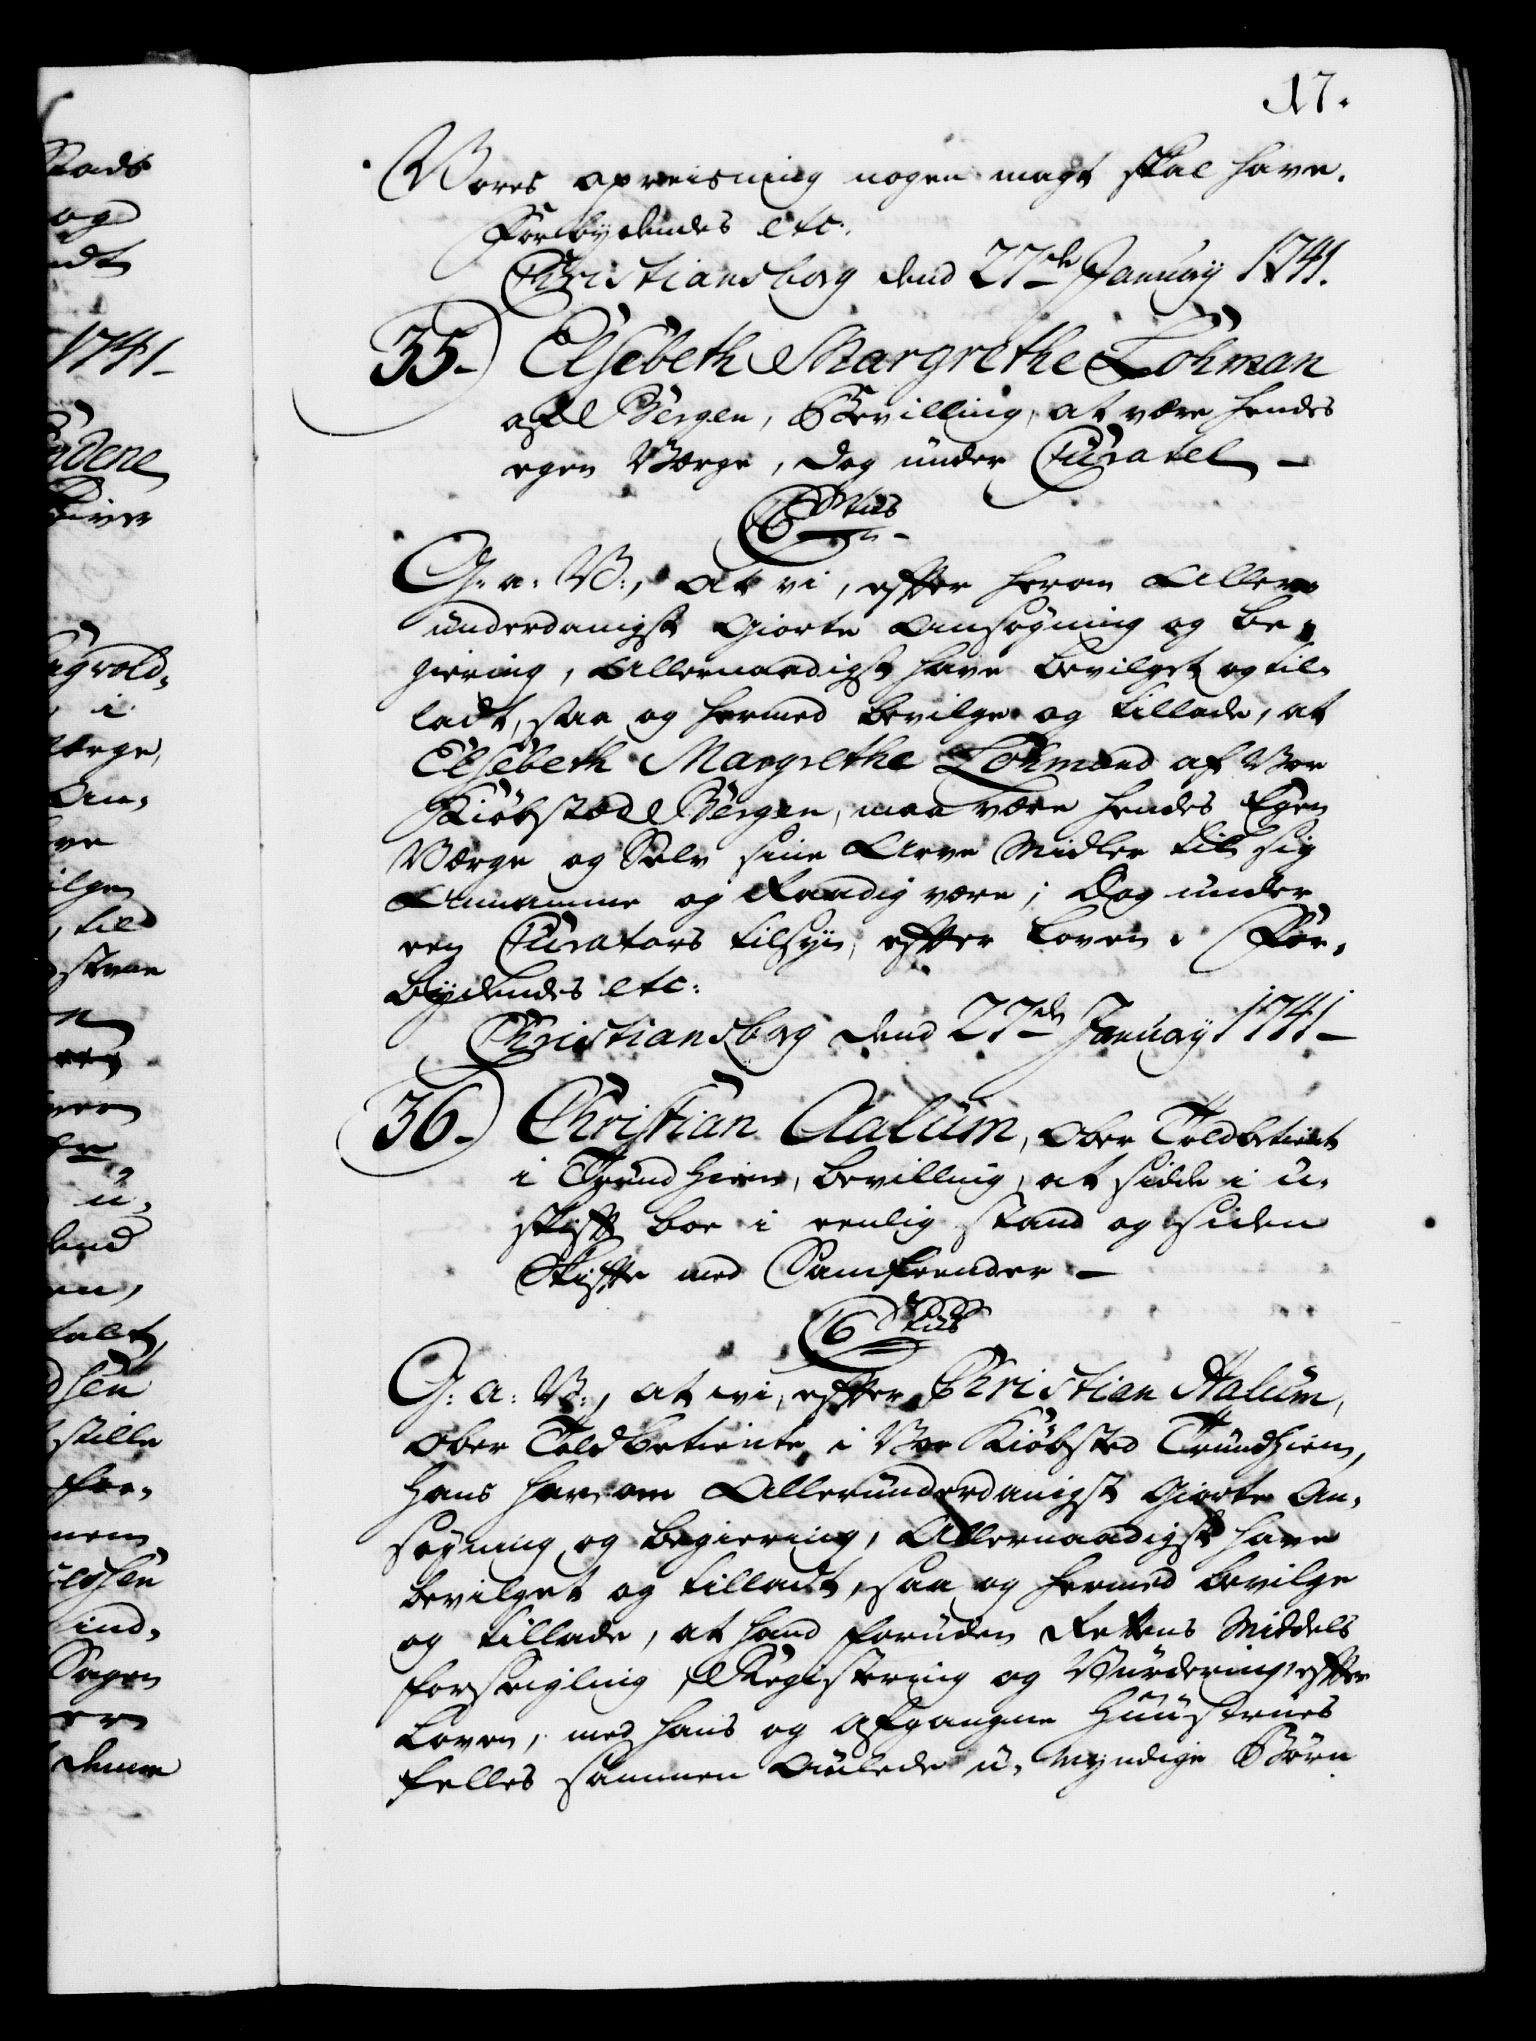 17.
Vores opreisning nogen magt skal have.
Forbydendes etc:
Christiansborg dend 27de January 1741.
35. Elsebeth Margrethe Lohman
af Bergen, Bevilling, at være hendes
egen Værge, dog under Curatel
C6 Stüs
G: a: V:, at vi, efter herom Aller-
underdanigst giorte Ansøgning og Be-
giering, Allernaadigst have bevilget og til-
ladt, saa og hermed bevilge og tillade, at
Elsebeth Margrethe Lohmand af Vor
Kiøbsted Bergen, maa være hendes Egen
Værge og Selv sine Arve Midler til sig
Annamme og Raadig være; Dog under
een Curators tilsyn, efter Loven. For-
bydendes etc:
Christiansborg dend 27de January 1741
36. Christian Aalüm, Ober Toldbetient
i Trundhiem, bevilling, at sidde i u-
skift boe i eenlig stand og siden
Skifte med Samfrender
C6 Stüs
G: a: V:, at vi, efter Christian Aalüm,
Ober Toldbetiente i Vor Kiøbsted Trundhiem,
Hans herom Allerunderdanigst giorte An-
søgning og begiering, Allernaadigst have
bevilget og tilladt, saa og hermed bevilge
og tillade, at hand foruden Rettens Middels
forseigling, Registering og Vurdering efter
Loven, med hans og afgangne Huustrues
felles sammen Aulede u-myndige Børn